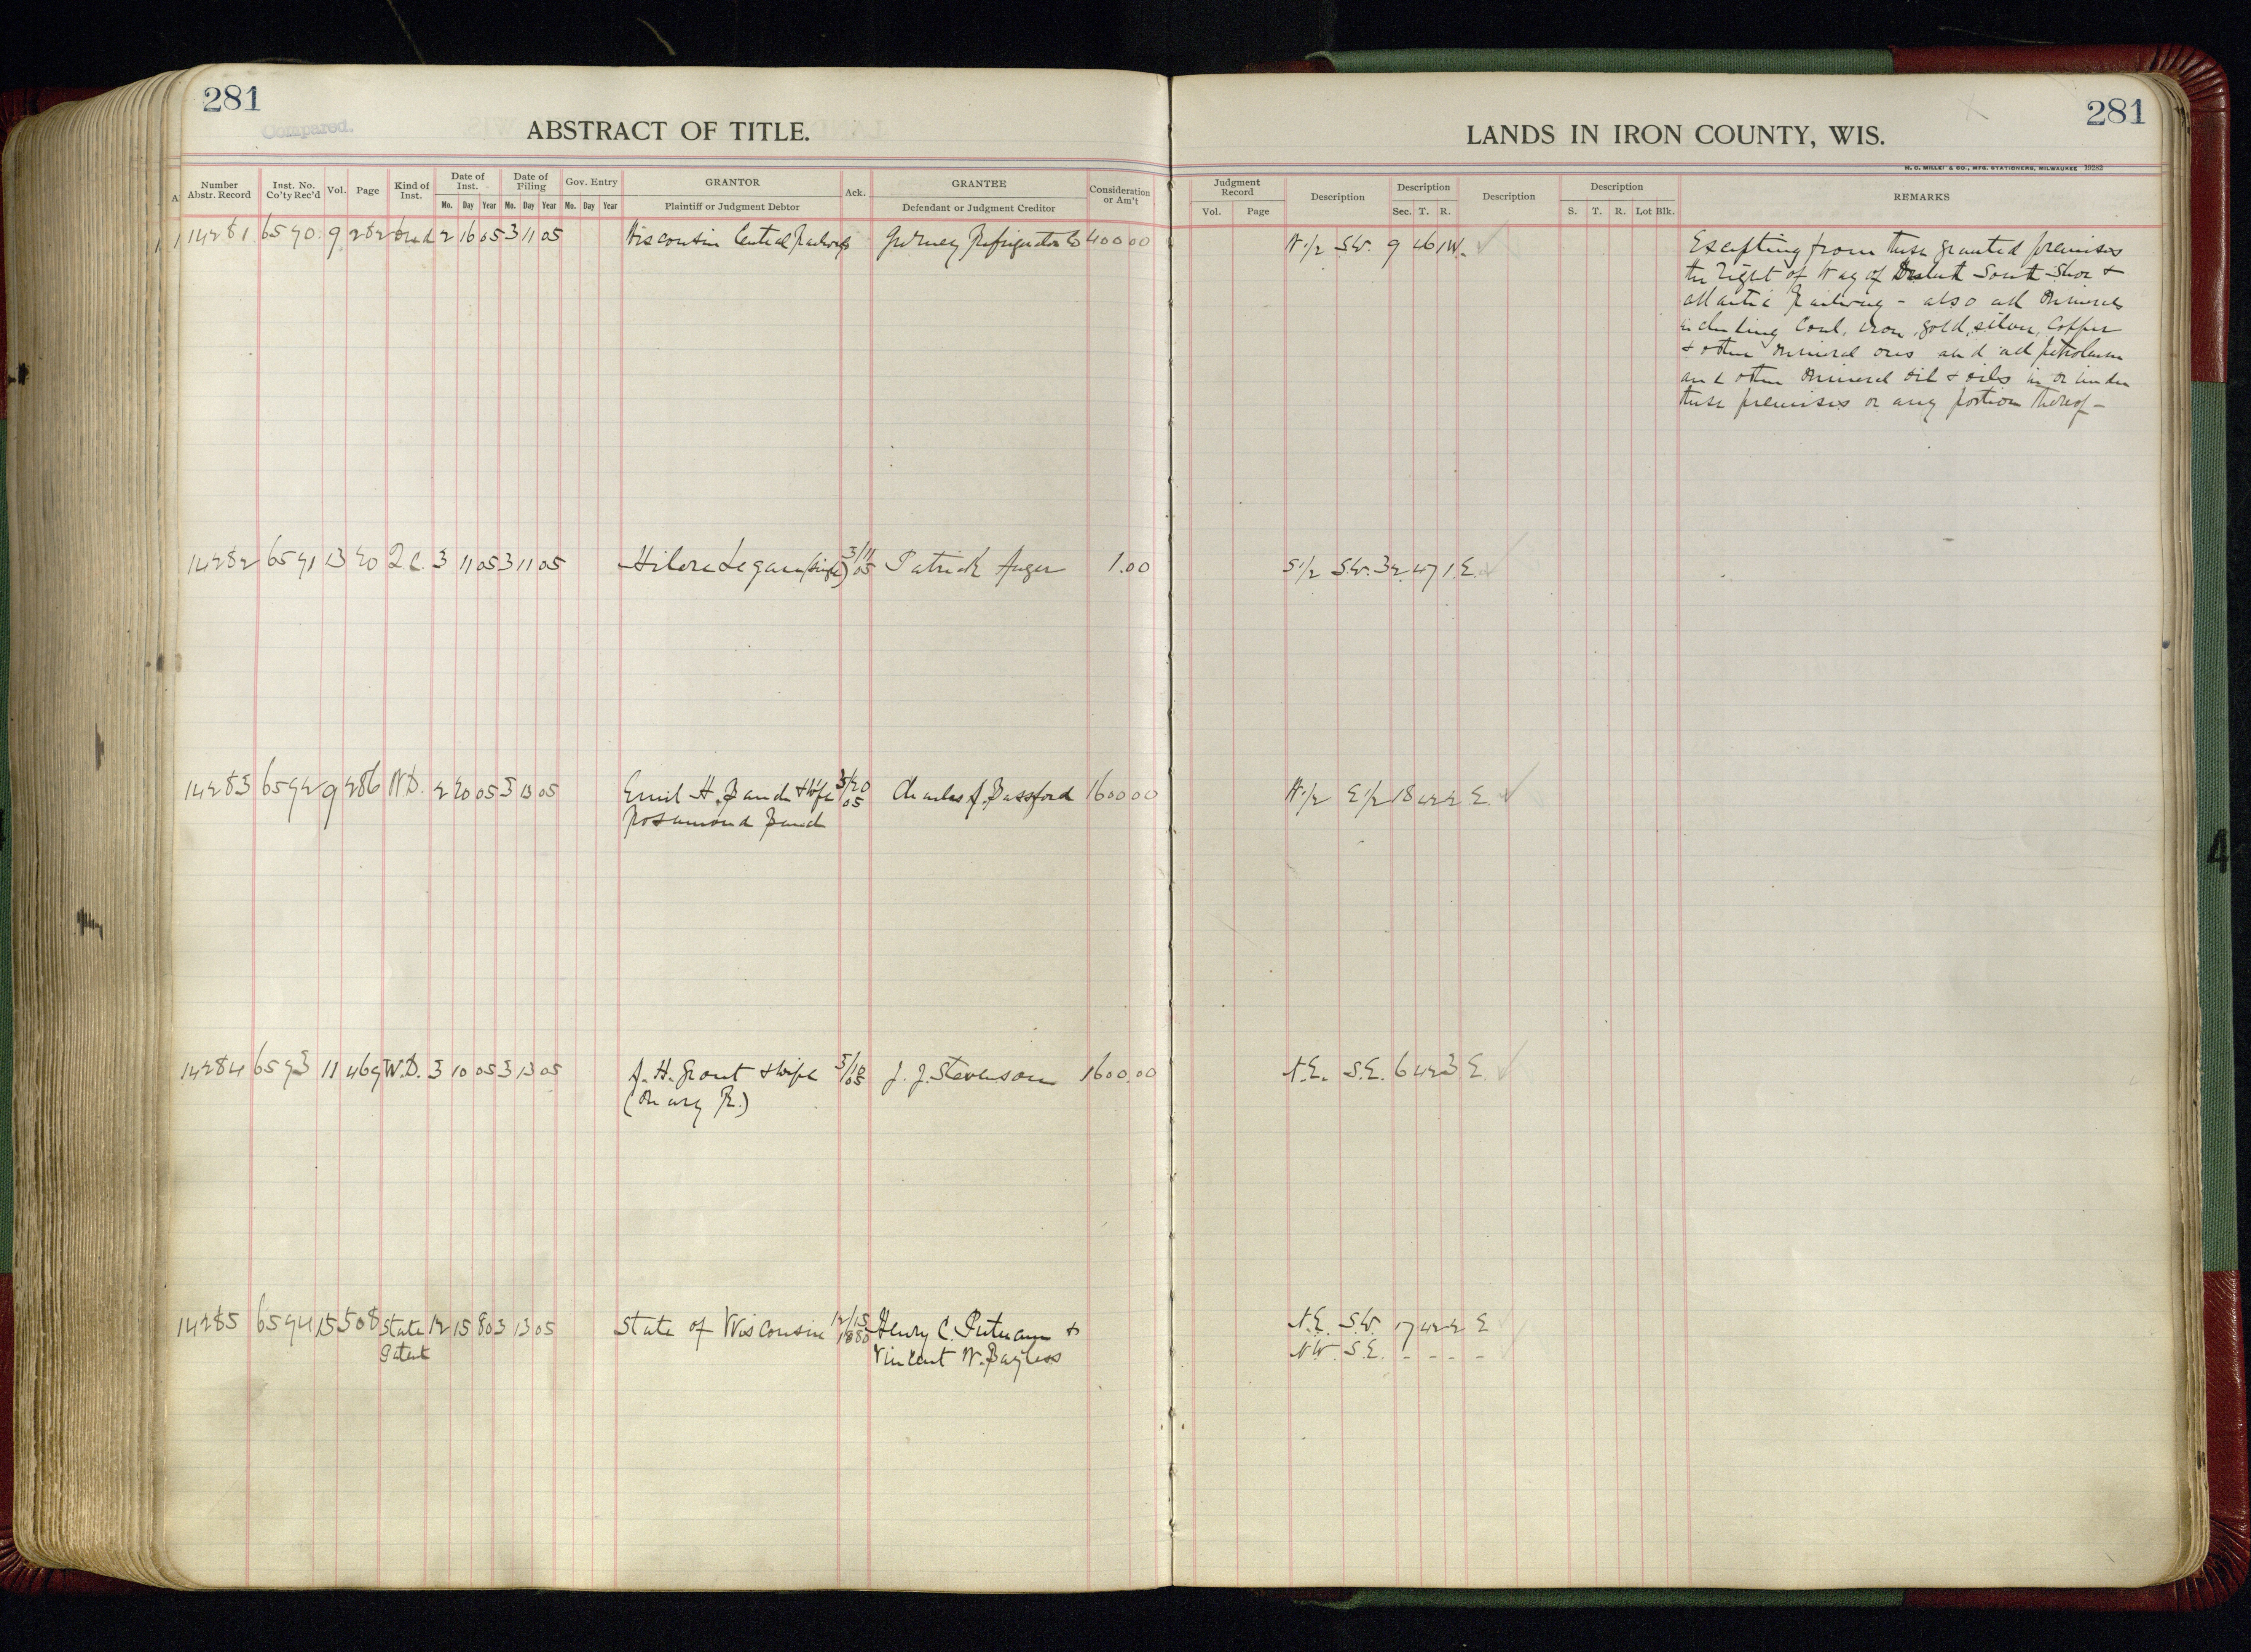 281
Compared.
ABSTRACT OF TITLE.
Number Abstr. Record Inst. No. Co'ty Rec'd Vol. Page Kind of Inst. Date of Inst. Date of Filing Gov. Entry GRANTOR Ack. GRANTEE Consideration or Am't
Mo. Day Year Mo. Day Year Mo. Day Year Plaintiff or Judgment Debtor Defendant or Judgment Creditor
14281 6590 9 282 Deed 2 16 05 3 11 05 Wisconsin Central Railway Gurney Refrigerator Co 400 00
14282 6591 13 20 Q.C. 3 11 05 3 11 05 (Single) 3/11 05 Patrick Auger 1.00
14283 6592 9 286 W.D. 2 20 05 3 13 05 Emil H. & Wife 05 Charles A. Bassford 1600 00
Rosamond
14284 6593 11 469 W.D. 3 10 05 3 13 05 A. H. Grout & Wife 3/10 05 J. J. Stevenson 1600.00
(Mary R.)
14285 6594 15 508 State 12 15 80 3 13 05 State of Wisconsin 12/15 1880 Henry C. Putnam &
Patent Vincent W. Bayless
281
LANDS IN IRON COUNTY, WIS.
H. C. MILLER & CO., MFG. STATIONERS, MILWAUKEE 19282
Judgment Record Description Description Description Description REMARKS
Vol. Page Sec. T. R. S. T. R. Lot Blk.
N 1/2 S.W. 9 46 1 W.
Excepting from these granted premises
the Right of Way of Duluth South Shore &
Atlantic Railway - also all minerals
including Coal, iron, gold, silver, Copper
& other mineral ores and all petroleum
and other mineral oil & oils in or under
these premises or any portion thereof -
S 1/2 S.W. 32 47 1 E.
N 1/2 E 1/2 18 42 2 E.
N.E. S.E. 6 42 3 E.
N.E. S.W. 17 42 2 E
N.W. S.E. - - - -